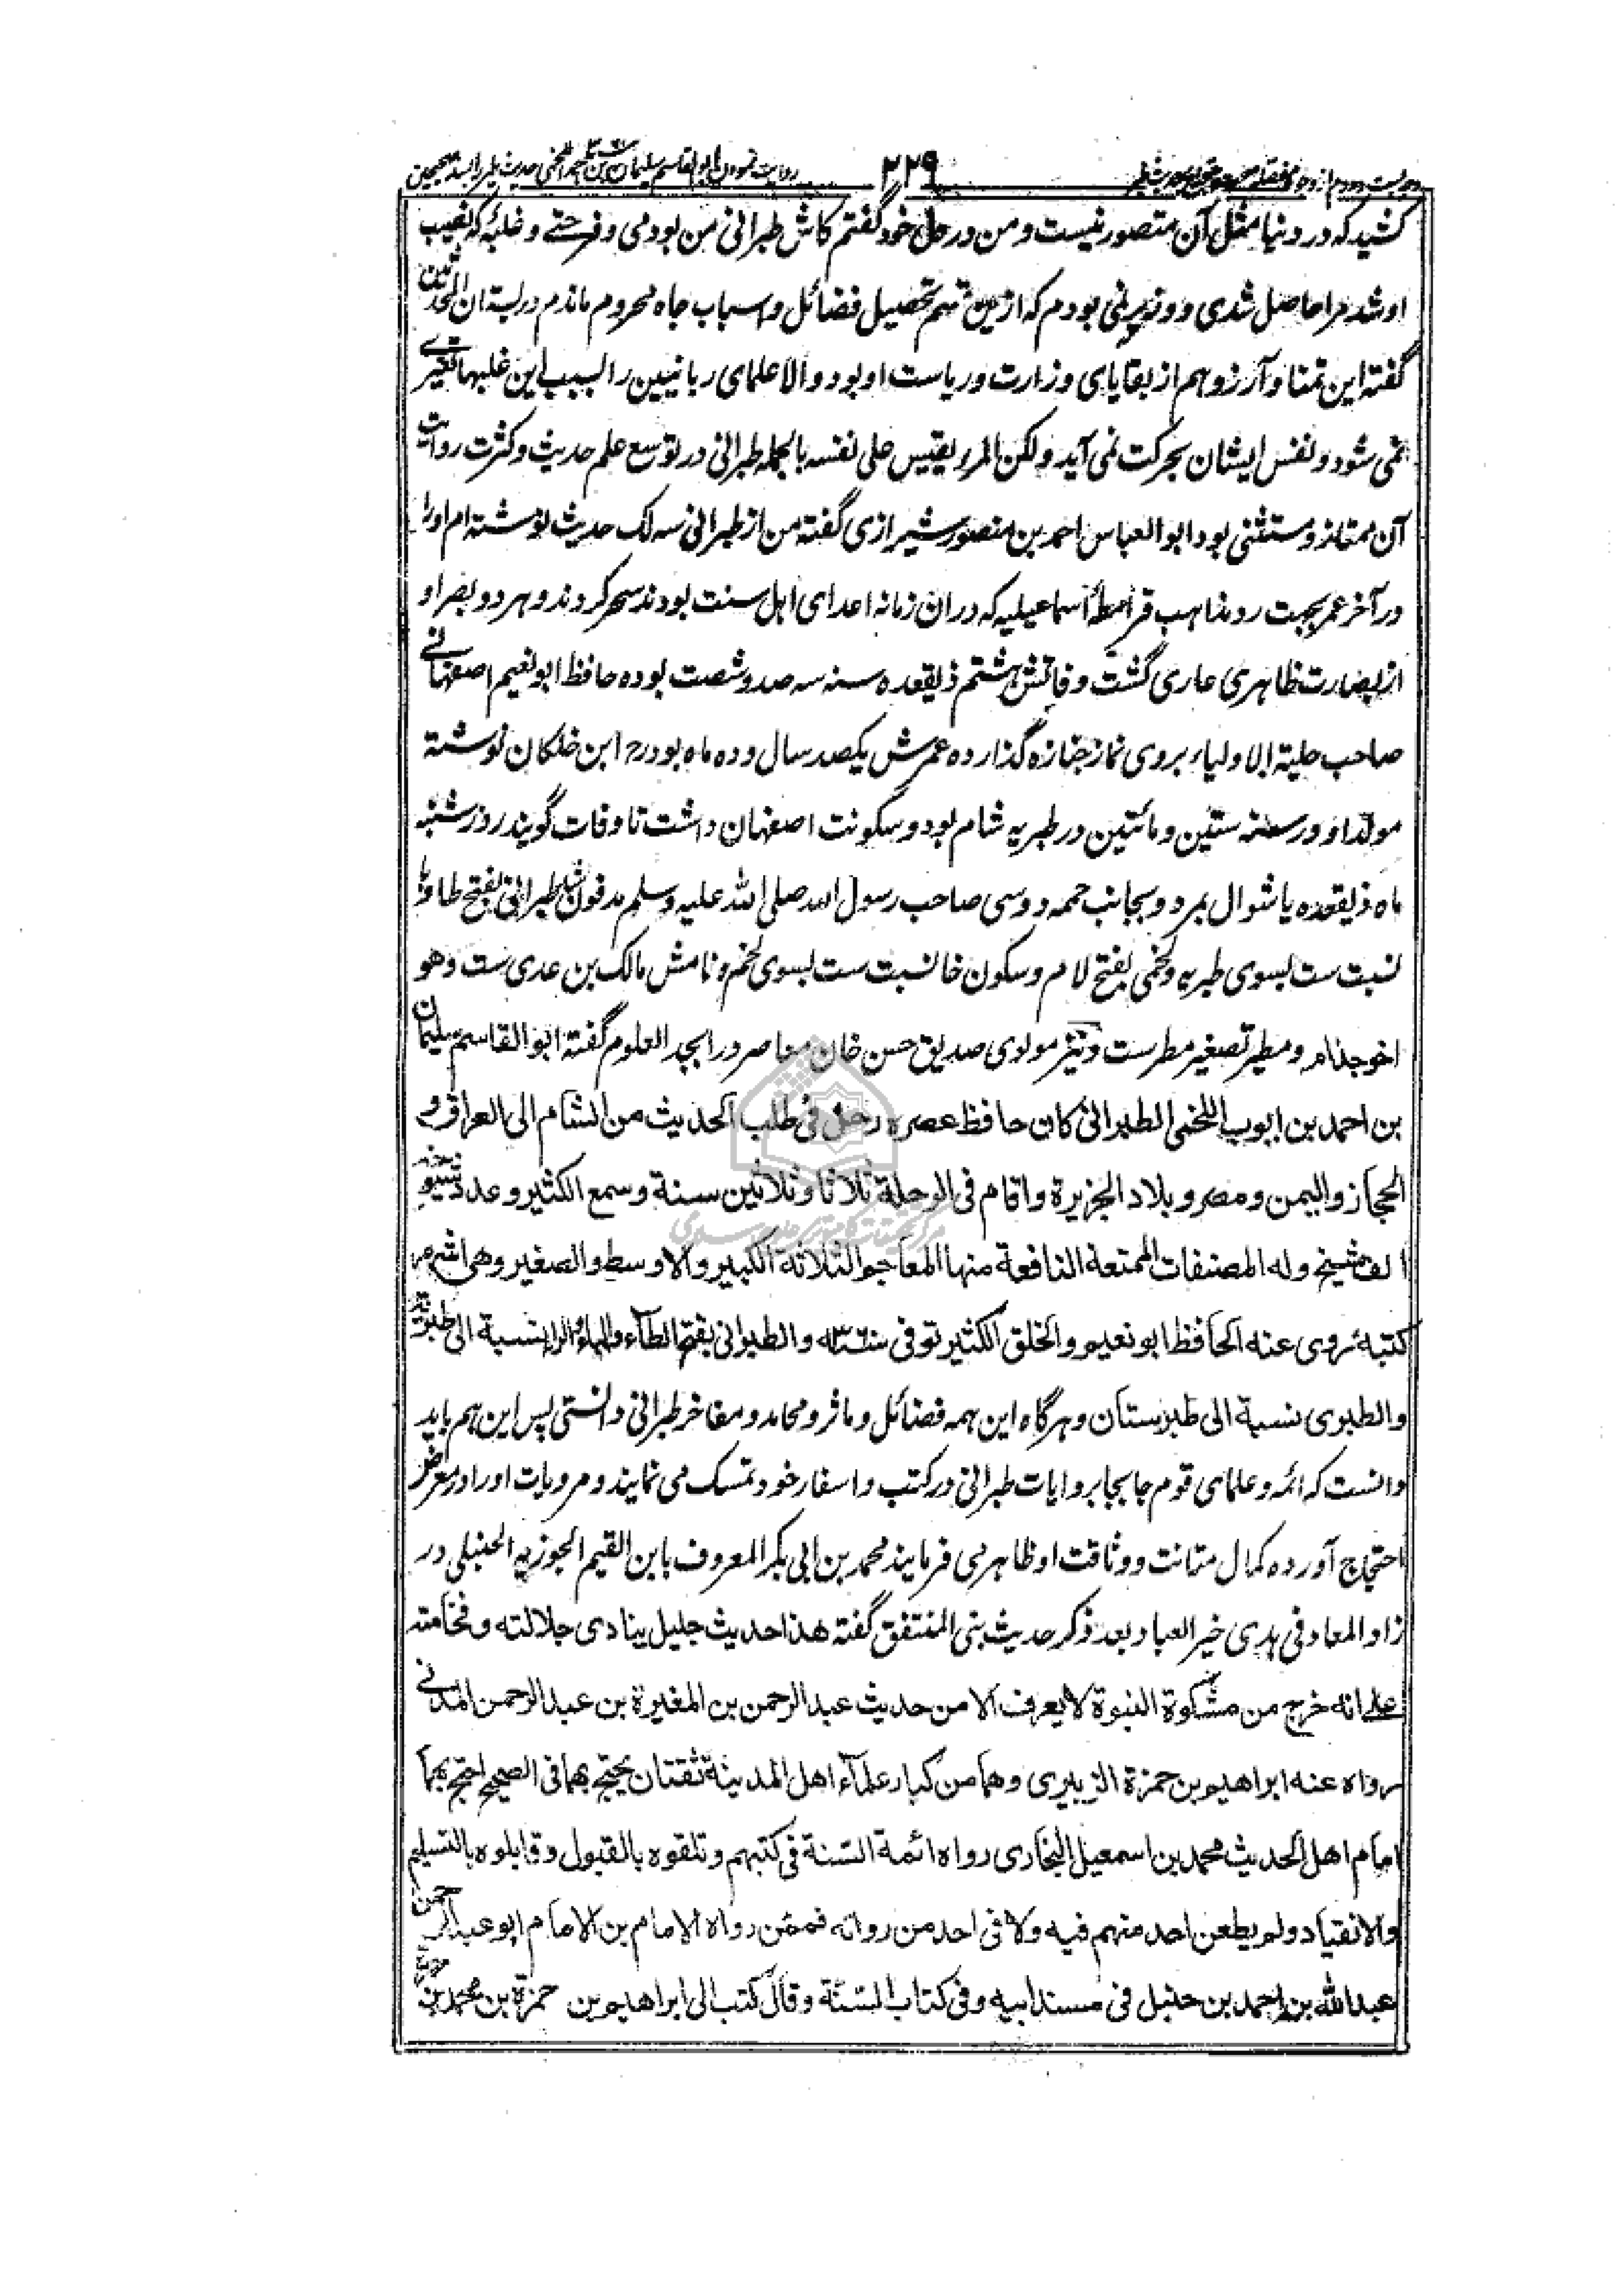 روایت نمودن ابوالقاسم سلیمان بن احمد اللخمی حدیث طیر را بسند صحیحین
۲۲۹
کشید که در دنیا مثل آن متصور نیست و من در دل خود گفتم کاش طبرانی من بودمی و فرحتے و غلبۂ که نصیب
او شد مرا حاصل شدی و وزیر نمی بودم که ازین قسم تحصیل فضائل و اسباب جاه محروم ماندم در بستان المحدثین
گفته این تمنا و آرزو هم از بقایای وزارت و ریاست او بود والا علمای ربانیین را بسبب این غلبها تغیرے
نمی شود و نفس ایشان بحرکت نمی آید ولکن المرء یقیس علی نفسه بالجمله طبرانی در توسع علم حدیث و کثرت روایت
آن ممتاز و مستثنی بود ابوالعباس احمد بن منصور شیرازی گفته من از طبرانی سه لک حدیث نوشته ام او را
در آخر عمر بجهت رد مذاهب قرامطۂ اسماعیلیه که دران زمانه اعدای اهل سنت بودند سحر کردند و هر دو بصر او
از بصارت ظاهری عاری گشت وفاتش هشتم ذیقعده سنه سه صد و شصت بوده حافظ ابونعیم اصفهانے
صاحب حلیة الاولیاء بروی نماز جنازه گذارده عمرش یکصد سال و ده ماه بود رح ابن خلکان نوشته
مولد او در سنه ستین و مائتین در طبریه شام بود و سکونت اصفهان داشت تا وفات گویند روز شنبه
ماه ذیقعده یا شوال بمرد و بجانب حممه دوسی صاحب رسول الله صلی الله علیه وسلم مدفون شد طبرانی بفتح طا و با
نسبت ست بسوی طبریه و لخمی بفتح لام و سکون خا نسبت ست بسوی لخم و نامش مالک بن عدی ست وهو
اخو جذام و مطیر تصغیر مطرست و نیز مولوی صدیق حسن خان معاصر در ابجد العلوم گفته ابوالقاسم سلیمان
بن احمد بن ایوب اللخمی الطبرانی کان حافظ عصره رحل فی طلب الحدیث من الشام الی العراق و
الحجاز والیمن و مصر و بلاد الجزیرة واقام فی الرحلة ثلاثا وثلاثین سنة وسمع الکثیر وعدد شیوخه
الف شیخ وله المصنفات الممتعة النافعة منها المعاجم الثلاثة الکبیر والاوسط والصغیر وهی اشهر
کتبه روی عنه الحافظ ابو نعیم والخلق الکثیر توفی سنه ۳۶۰ والطبرانی بفتح الطاء والباء والراء نسبة الی طبریة
والطبری نسبة الی طبرستان و هرگاه این همه فضائل و ماثر و محامد و مفاخر طبرانی دانستی پس این هم باید
دانست که ائمه و علمای قوم جابجا بروایات طبرانی در کتب و اسفار خود تمسک می نمایند و مرویات او را در معرض
احتجاج آورده کمال متانت و وثاقت او ظاهر می فرمایند محمد بن ابی بکر المعروف بابن القیم الجوزیه الحنبلی در
زاد المعاد فی هدی خیر العباد بعد ذکر حدیث بنی المنتفق گفته هذا حدیث جلیل ینادی جلالته و فخامته
علی انه خرج من مشکوة النبوة لا یعرف الا من حدیث عبدالرحمن بن المغیرة بن عبدالرحمن المدنے
رواه عنه ابراهیم بن حمزة الزبیری وهما من کبار علماء اهل المدینة ثقتان یحتج بهما فی الصحیح احتج بهما
امام اهل الحدیث محمد بن اسمعیل البخاری رواه ائمة السّنة فی کتبهم وتلقوه بالقبول وقابلوه بالتسلیم
والانقیاد ولم یطعن احد منهم فیه ولا فی احد من رواته فممّن رواه الامام بن الامام ابو عبدالرحمن
عبدالله بن احمد بن حنبل فی مسند ابیه وفی کتاب السّنّة وقال کتب الی ابراهیم بن حمزة بن محمد بن